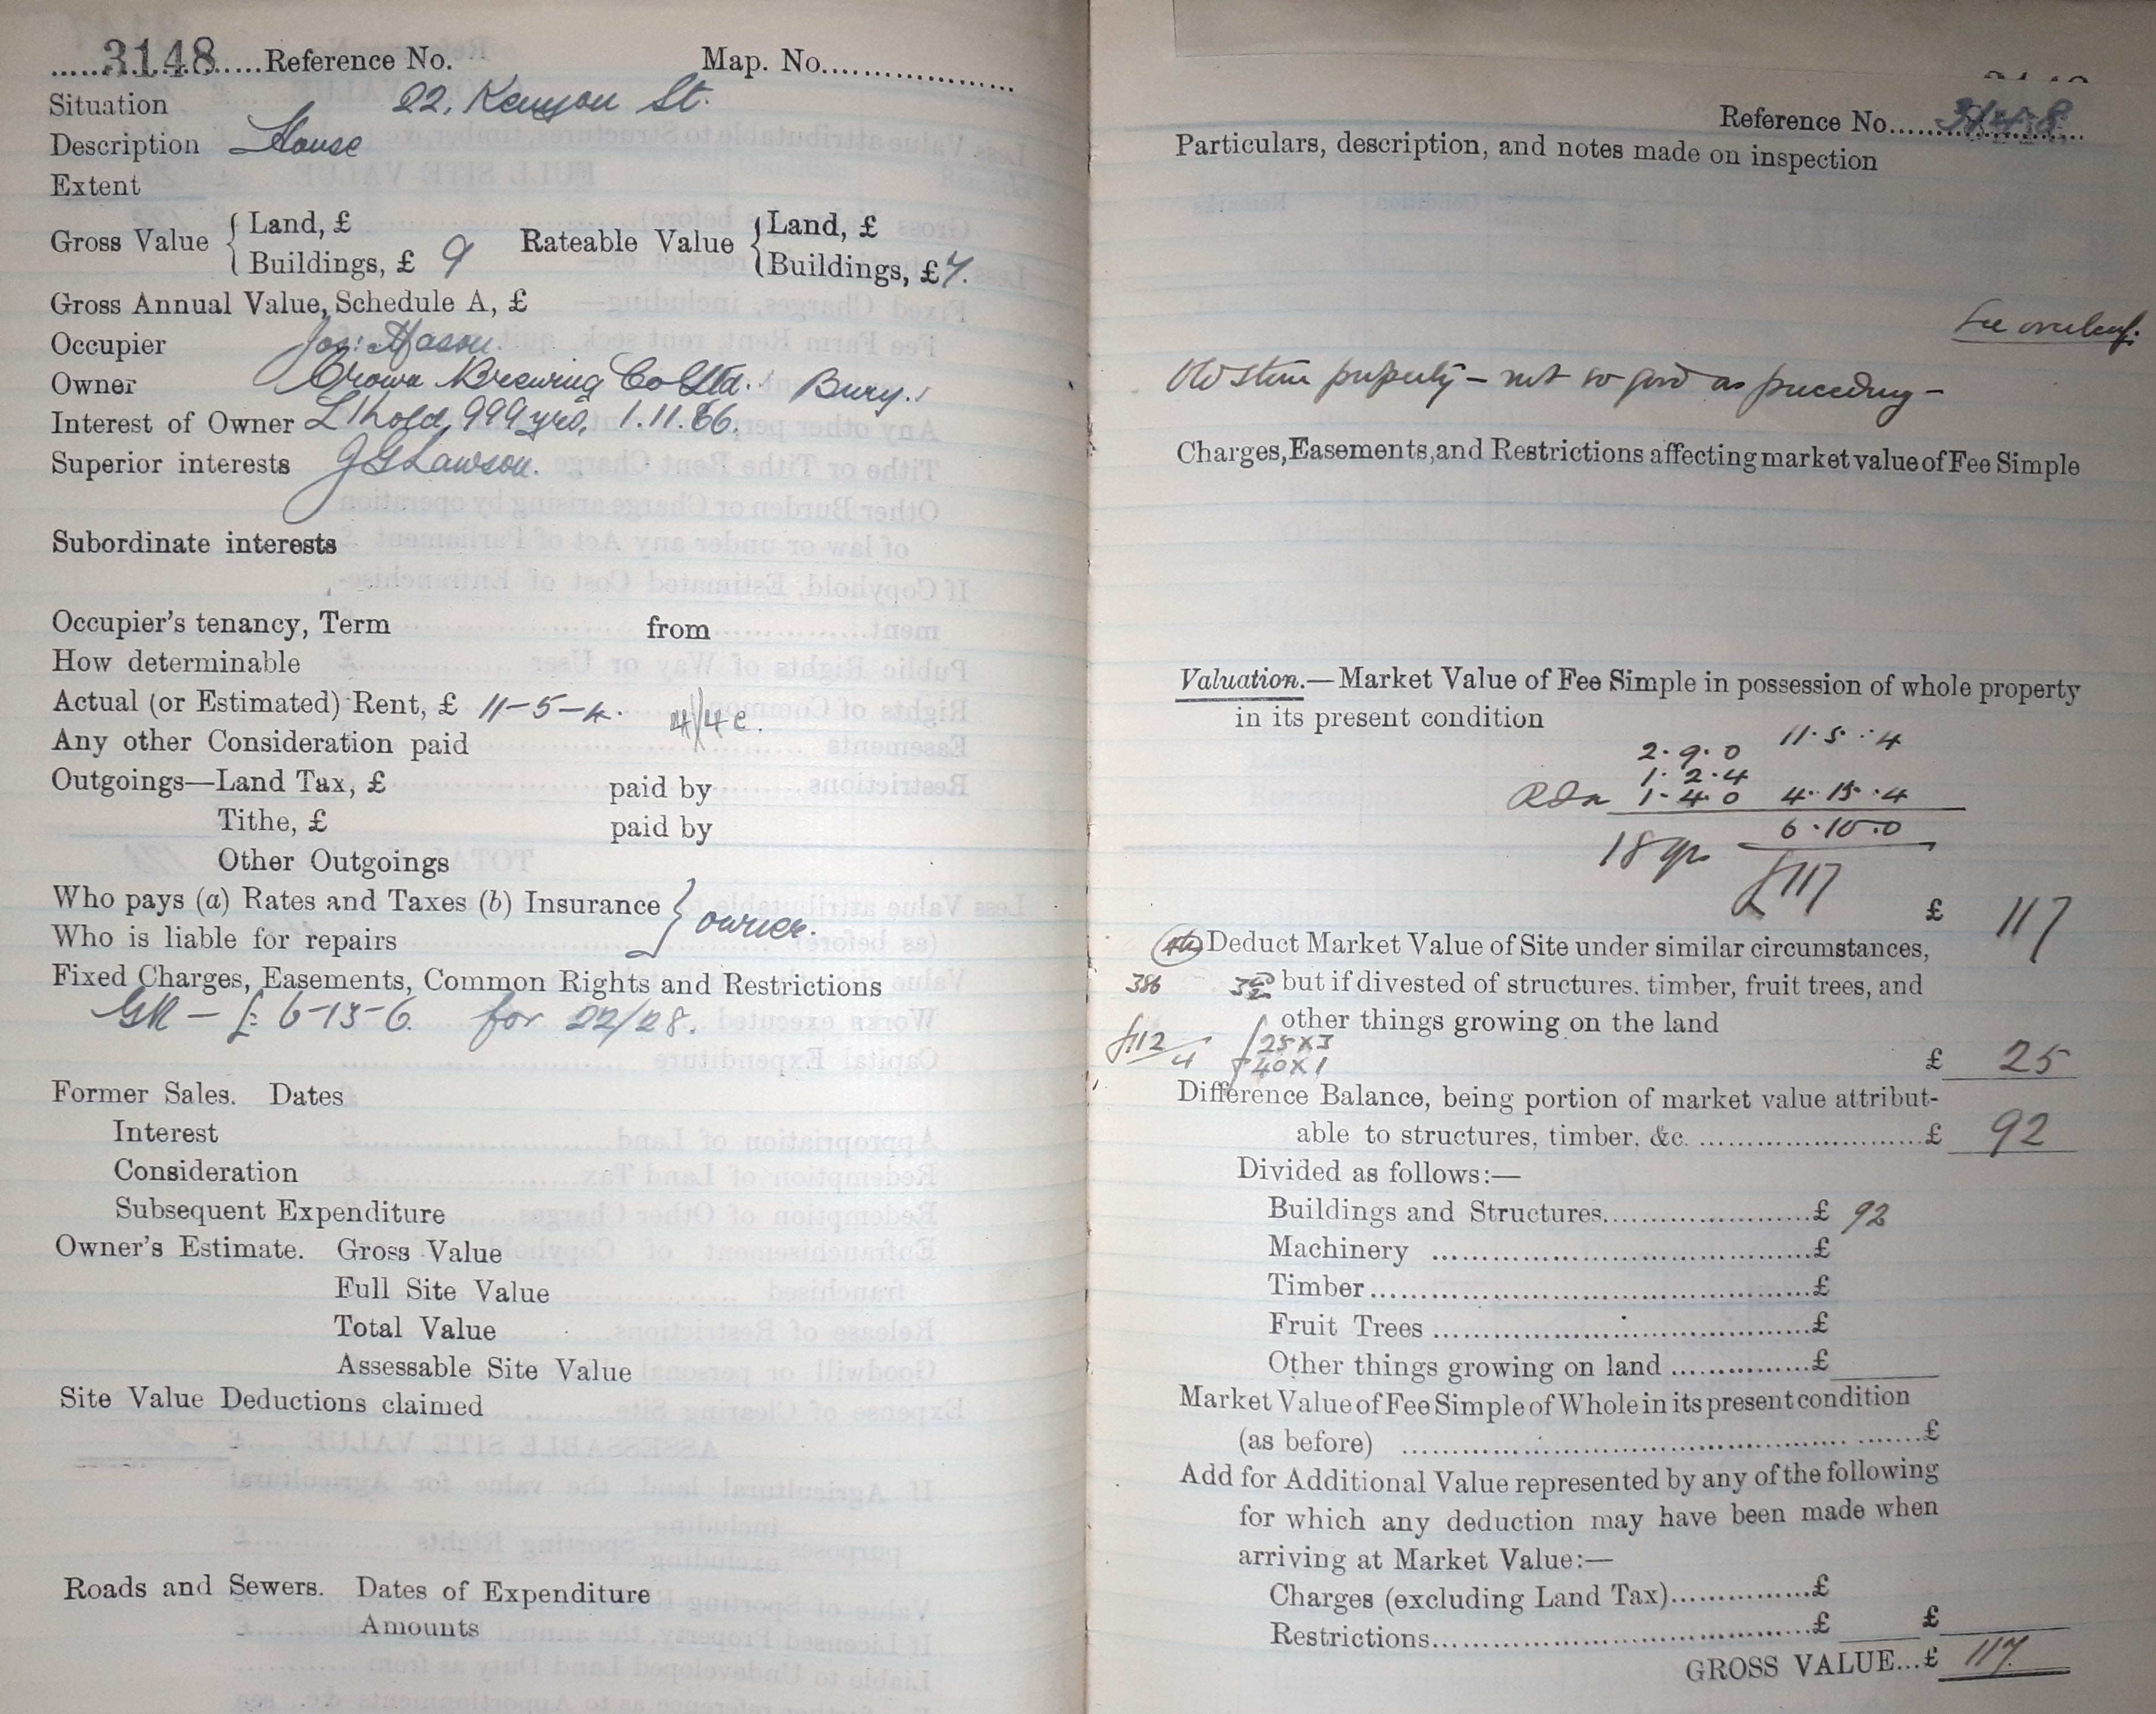 3148 Reference No. Map. No.
Situation 22, Kenyon St.
Description House
Extent
Gross Value { Land, £ Rateable Value { Land, £
Buildings, £ 9 Buildings, £ 7.
Gross Annual Value, Schedule A, £
Occupier Jos: Mason.
Owner Crown Brewing Co Ltd. Bury.
Interest of Owner L'hold, 999 yrs, 1.11.66.
Superior interests J G Lawson.
Subordinate interests
Occupier's tenancy, Term from
How determinable
Actual (or Estimated) Rent, £ 11-5-4. 4/4 e.
Any other Consideration paid
Outgoings—Land Tax, £ paid by
Tithe, £ paid by
Other Outgoings
Who pays (a) Rates and Taxes (b) Insurance } owner.
Who is liable for repairs
Fixed Charges, Easements, Common Rights and Restrictions
GR — £6-13-6. for 22/28.
Former Sales. Dates
Interest
Consideration
Subsequent Expenditure
Owner's Estimate. Gross Value
Full Site Value
Total Value
Assessable Site Value
Site Value Deductions claimed
Roads and Sewers. Dates of Expenditure
Amounts
Reference No. 3148
Particulars, description, and notes made on inspection
See overleaf.
Old stone property — not so good as preceding —
Charges, Easements, and Restrictions affecting market value of Fee Simple
Valuation.—Market Value of Fee Simple in possession of whole property
in its present condition
2.9.0 11.5.4
1.2.4
1.4.0 4.15.4
6.10.0
18 yrs
£117
£ 117
Deduct Market Value of Site under similar circumstances,
386 but if divested of structures, timber, fruit trees, and
other things growing on the land
£112/4 25 x 3
40 x 1
£ 25
Difference Balance, being portion of market value attribut-
able to structures, timber, &c. £ 92
Divided as follows:—
Buildings and Structures £ 92
Machinery £
Timber £
Fruit Trees £
Other things growing on land £
Market Value of Fee Simple of Whole in its present condition
(as before) £
Add for Additional Value represented by any of the following
for which any deduction may have been made when
arriving at Market Value:—
Charges (excluding Land Tax) £
Restrictions £ £
GROSS VALUE...£ 117